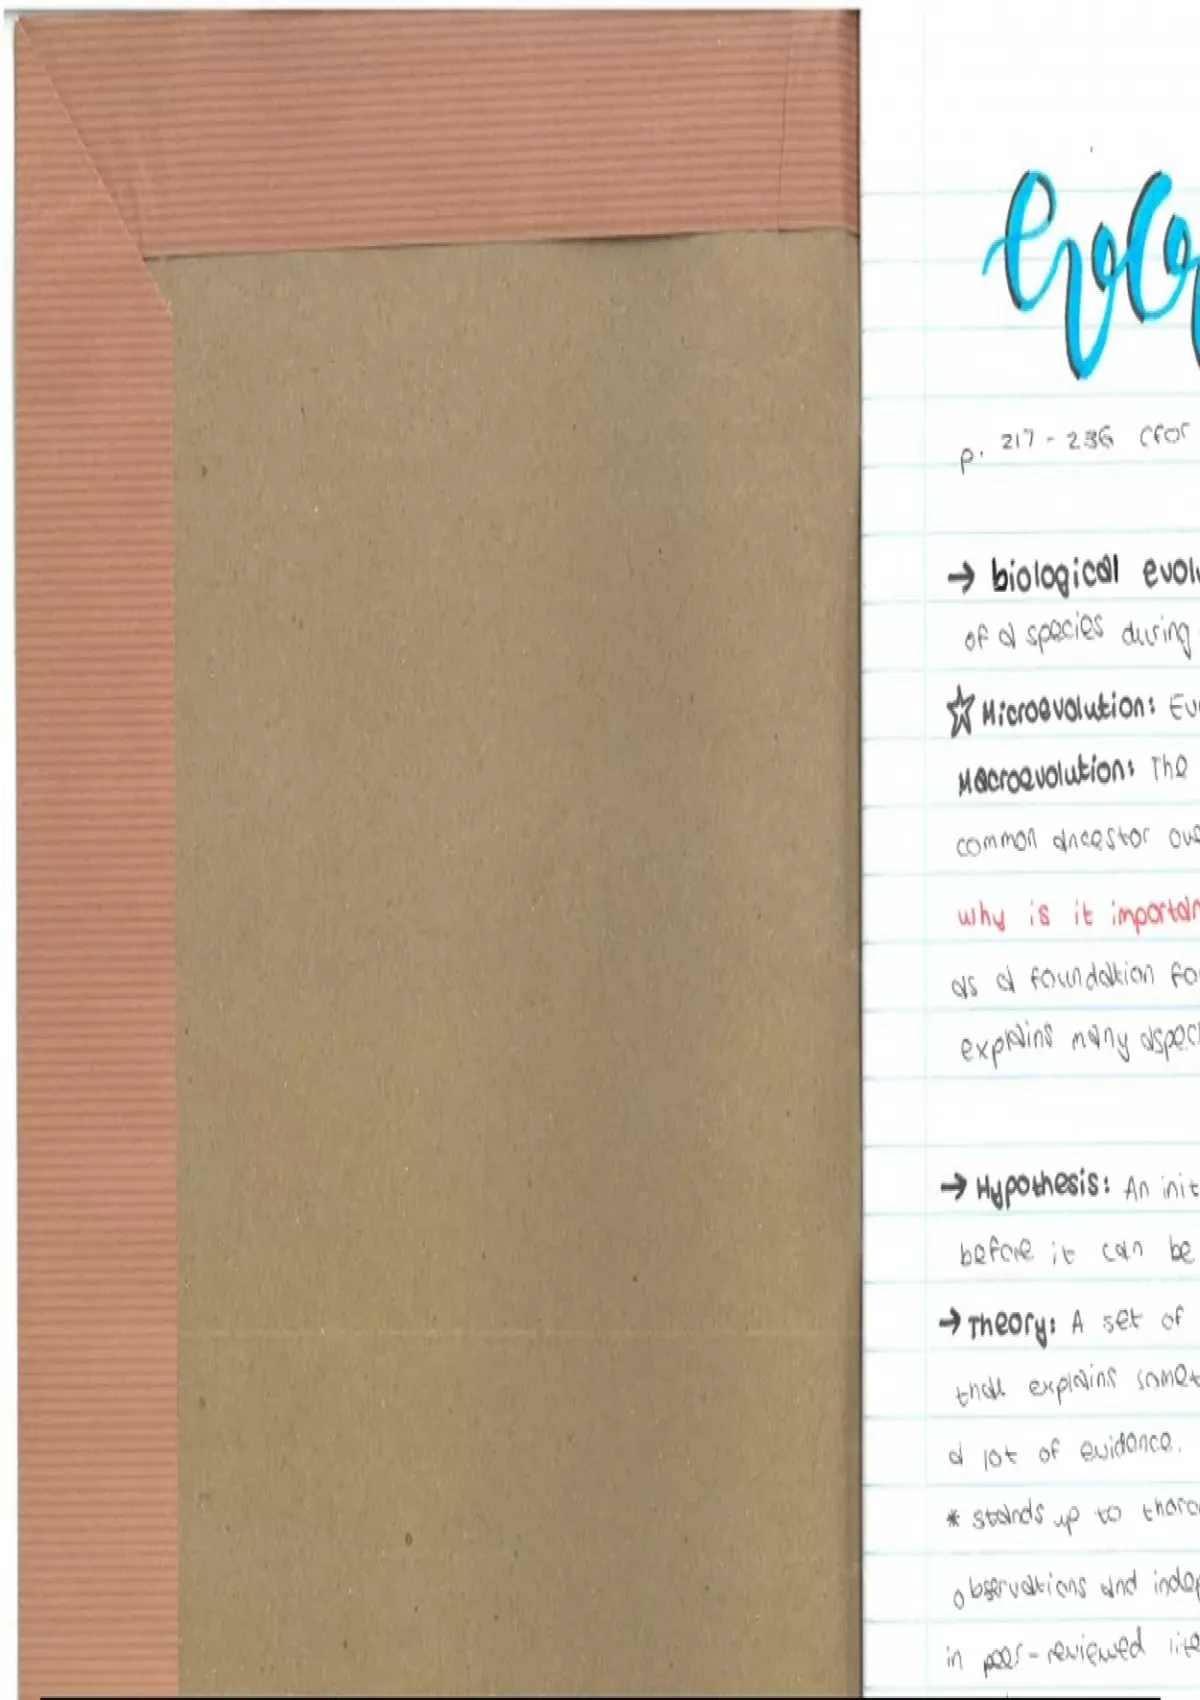 evol
p. 217 - 236 (for
→ biological evolu
of a species during
☆ Microevolution: Ev
Macroevolution: The
common ancestor ove
why is it importan
as a foundation fo
explains many aspec
→ Hypothesis: An init
before it can be
→ Theory: A set of
that explains somet
a lot of evidence.
* stands up to thoro
observations and indep
in peer-reviewed lite